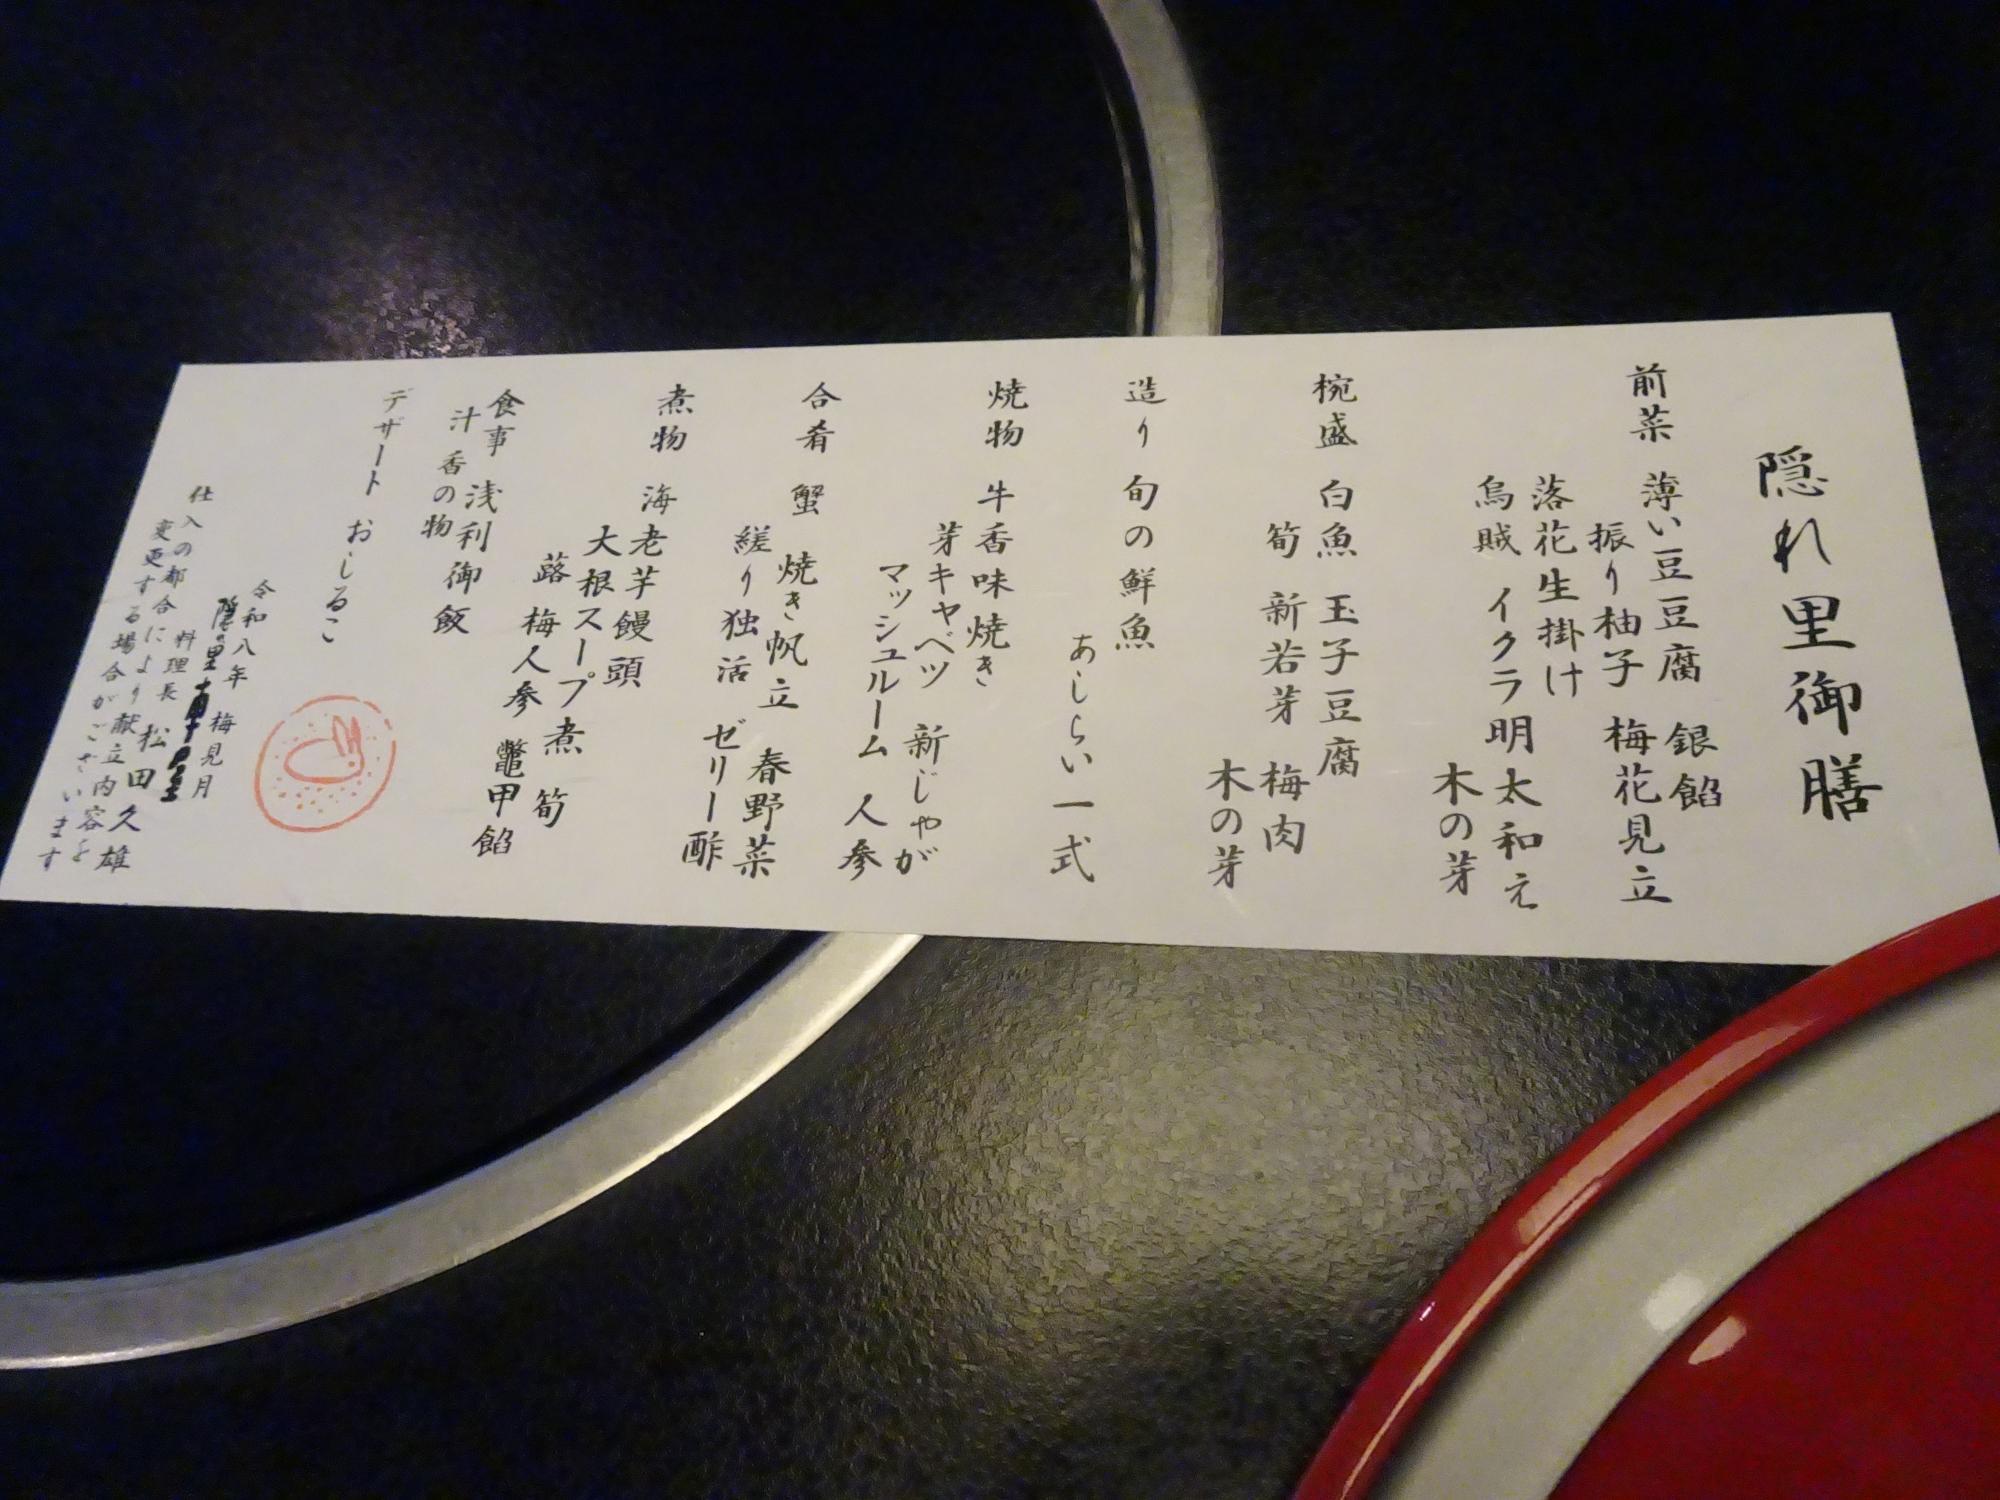 隠れ里御膳
前菜 薄い豆豆腐 銀餡
振り柚子 梅花見立
落花生掛け
烏賊 イクラ明太和え
木の芽
椀盛 白魚 玉子豆腐
筍 新若芽 梅肉
木の芽
造り 旬の鮮魚
あしらい一式
焼物 牛香味焼き
芽キャベツ 新じゃが
マッシュルーム 人参
合肴 蟹 焼き帆立 春野菜
縒り独活 ゼリー酢
煮物 海老芋饅頭
大根スープ煮 筍
蕗 梅人参 鼈甲餡
食事 浅利御飯
汁 香の物
デザート おしるこ
令和八年 梅見月
隠れ里
料理長 松田久雄
仕入の都合により献立内容を
変更する場合がございます